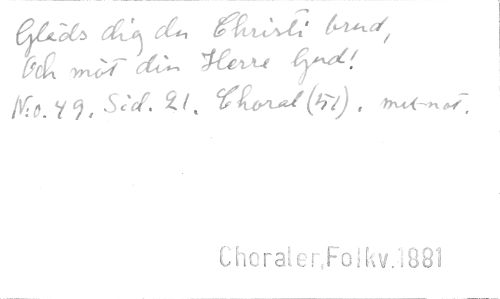 Gläds dig du Christi brud,
Och möt din Herre Gud!
N:o. 49. Sid. 21. Choral (51). met not.
Choraler, Folkv. 1881